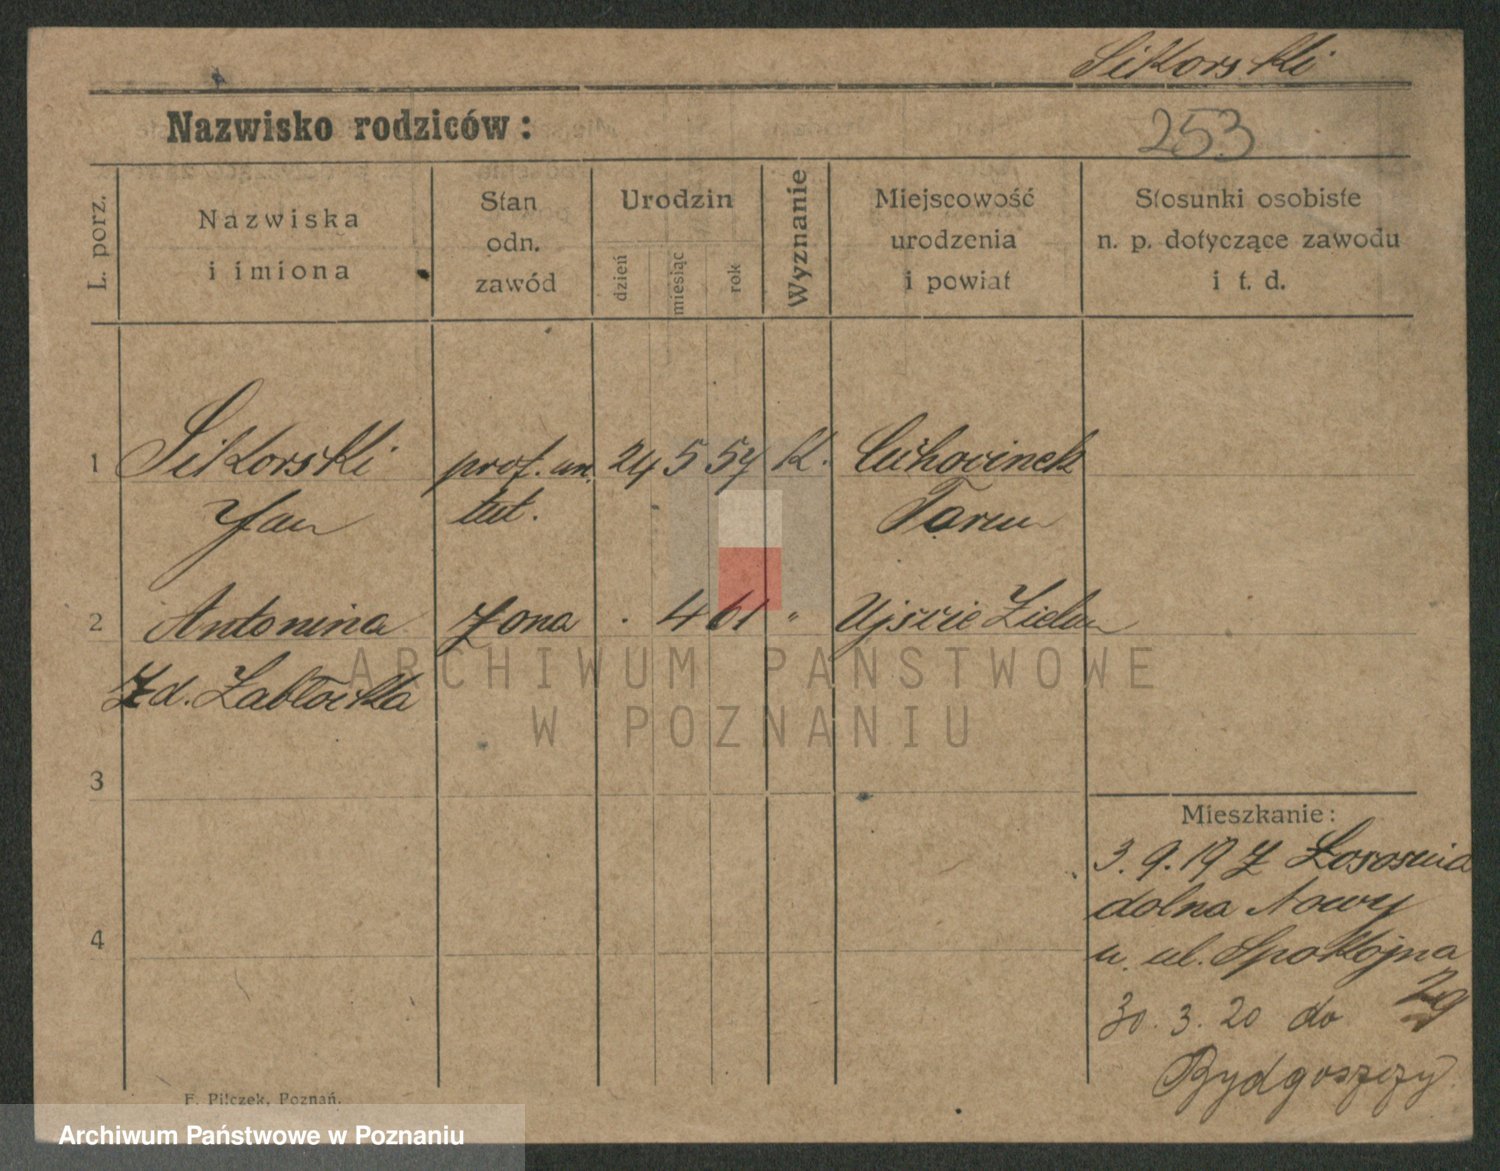 Sikorski
Nazwisko rodziców:
253
L. porz.
Nazwiska
i imiona
Stan
odn.
zawód
Urodzin
dzień
miesiąc
rok
Wyznanie
Miejscowość
urodzenia
i powiat
Stosunki osobiste
n. p. dotyczące zawodu
i t. d.
1 Sikorski prof. un. 24 5 57 K.
Jan tut.
2 Antonina żona . 4 61 " Ujście
Zd. Zabłocka
ARCHIWUM PAŃSTWOWE
W POZNANIU
3
Mieszkanie:
3. 9. 19 Z
dolna Nowy
4
u. ul. Spokojna
29
30. 3. 20 do
Bydgoszczy
F. Pilczek, Poznań.
Archiwum Państwowe w Poznaniu